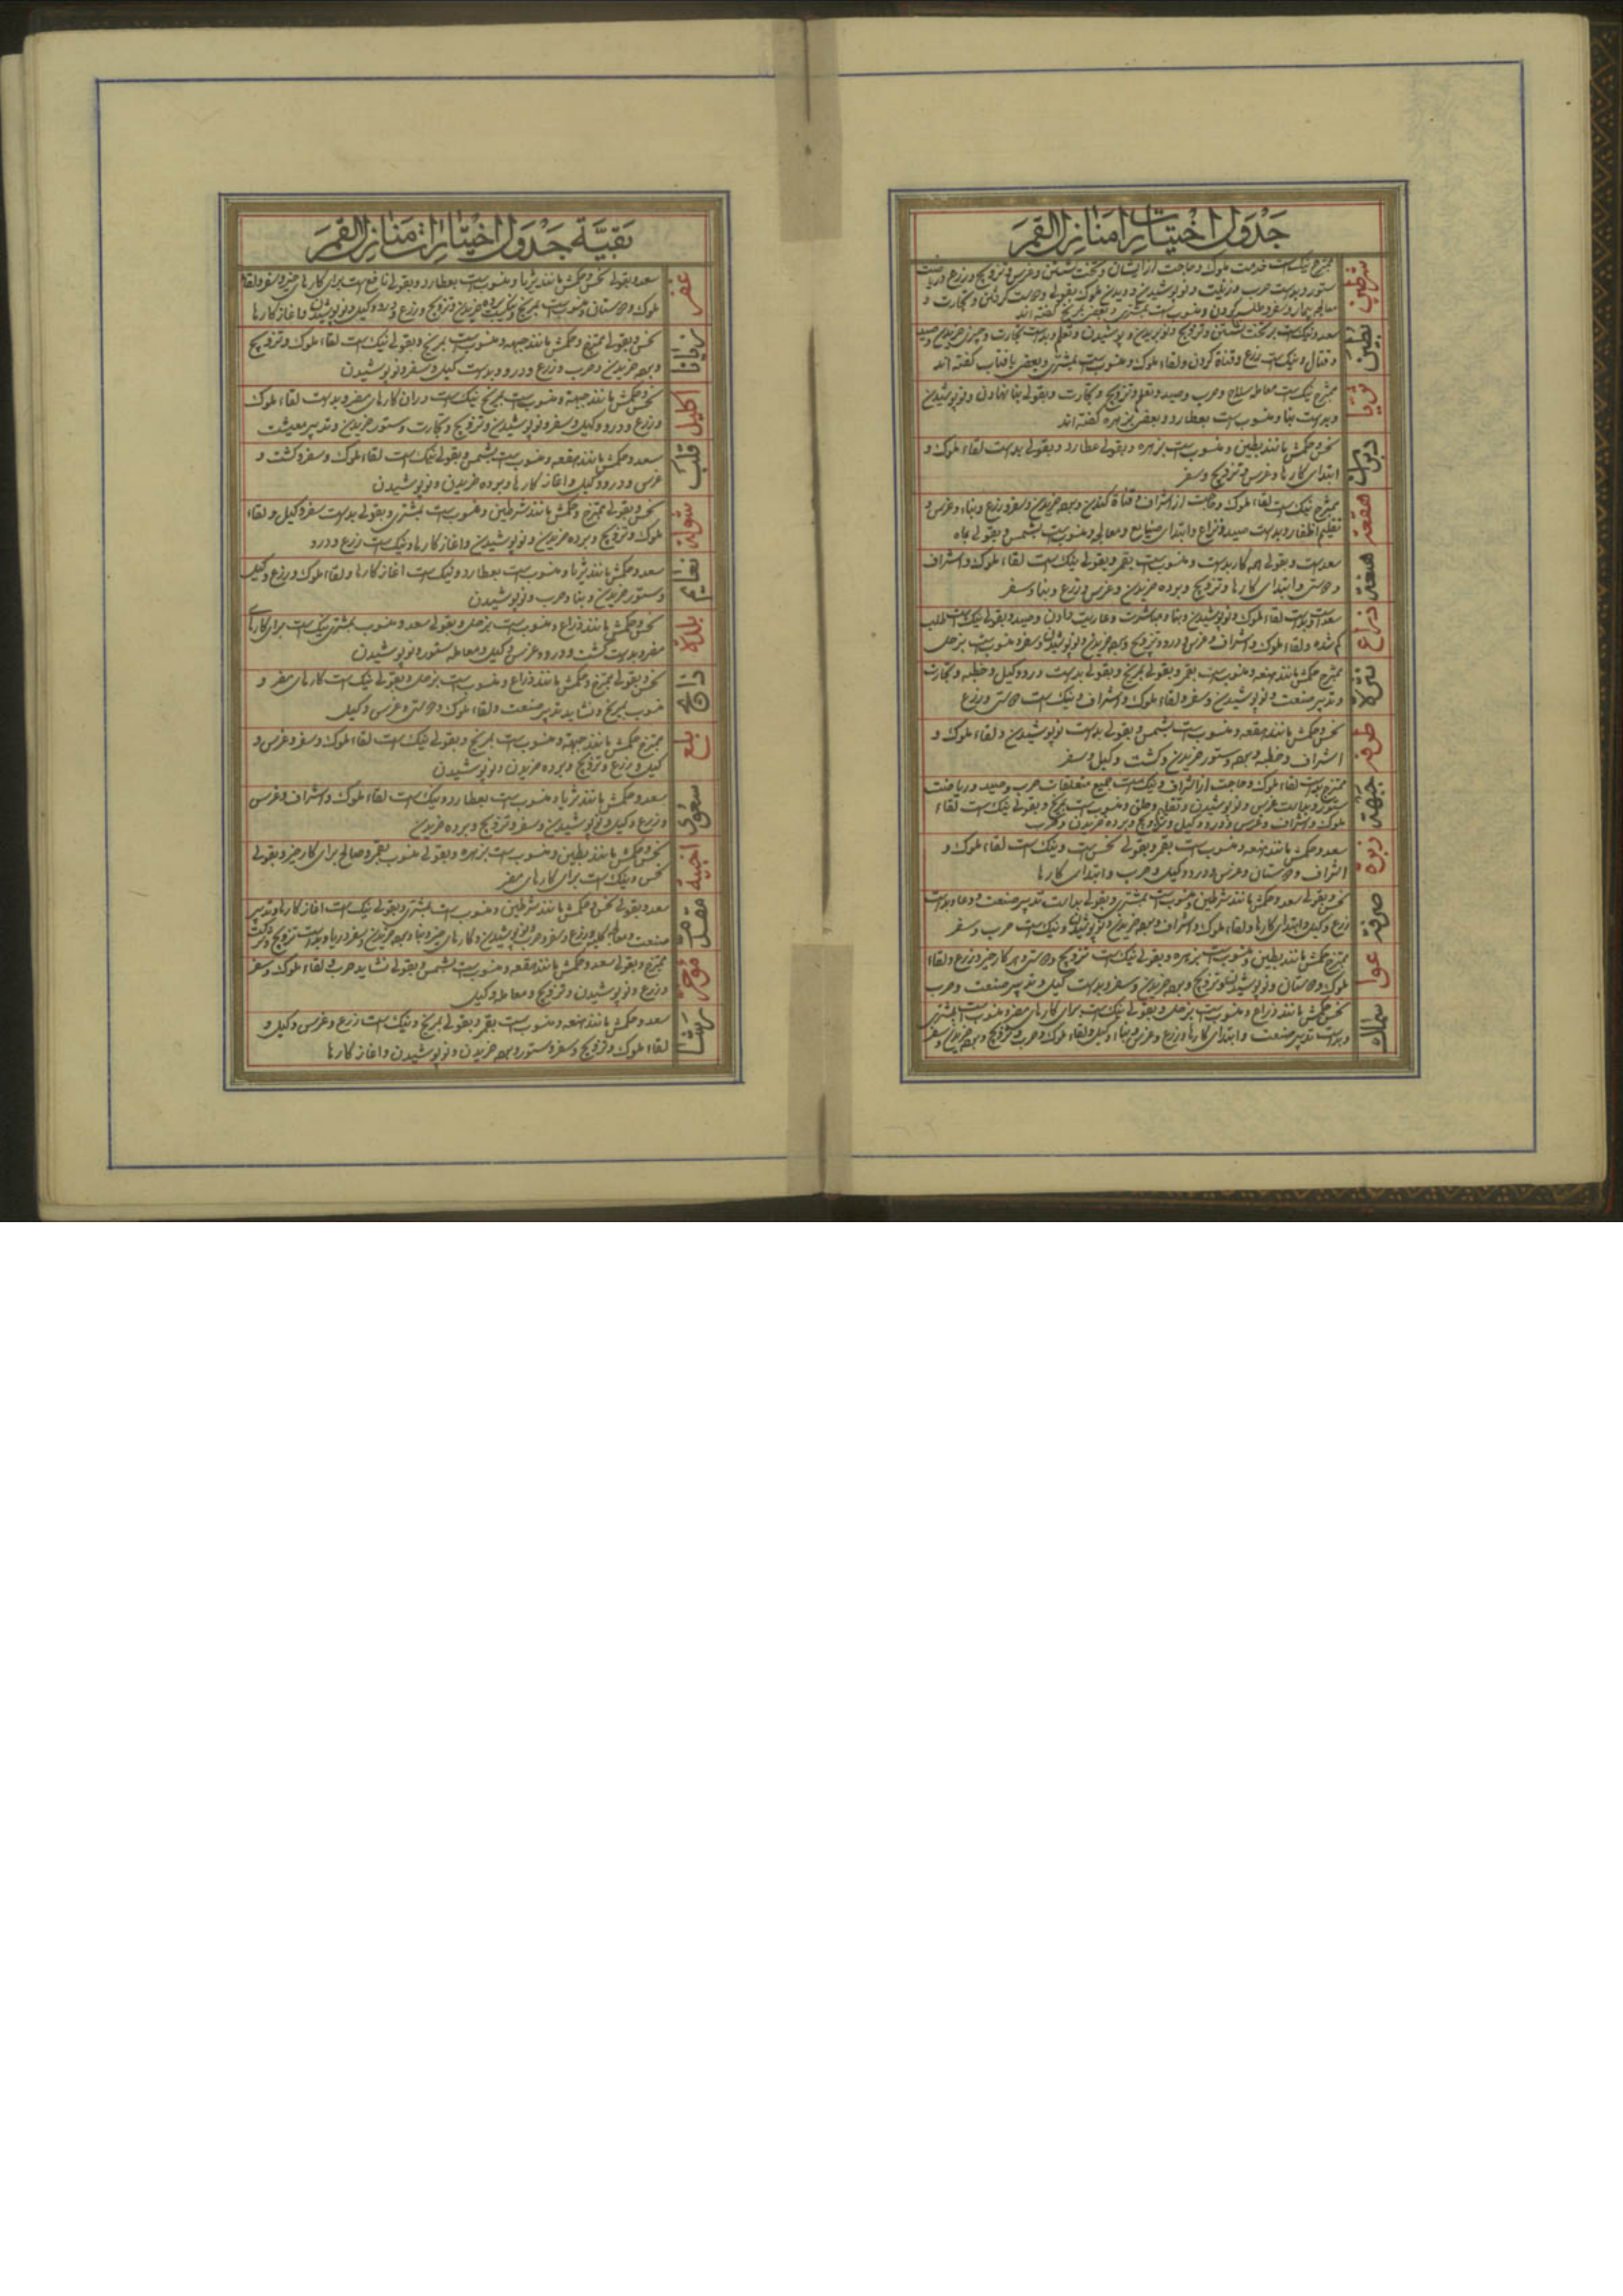 جدول اختیارات منازل القمر
شرطین
ممتزج نیک است خدمت ملوک و حاجت از ایشان و تخت نشستن و غرس و تزویج و زرع و ریاضت
ستور و بد است حرب و زینت و نو پوشیدن و دیدن ملوک بقولی
معالجه بیمار و سفر و طلب کردن و منسوب است بمشتری و بعضی بمریخ گفته اند
بطین
سعد و نیک است بر تخت نشستن و تزویج و نو بریدن و پوشیدن و تعلم و بد است تجارت و چیزی خریدن و صید
و قتال و نیک است زرع و قناة کردن و لقاء ملوک و منسوب است بمشتری و بعضی بافتاب گفته اند
ثریا
ممتزج نیک است معامله سلاح و حرب و صید و تعلم و تزویج و تجارت و بقولی بنا نهادن و نو پوشیدن
و بد است بنا و منسوب است بعطارد و بعضی بزهره گفته اند
دبران
نحس و حکمش مانند بطین و منسوب است بزهره و بقولی عطارد و بقولی بد است لقاء ملوک و
ابتدای کارها و غرس و تزویج و سفر
هقعه
ممتزج نیک است لقاء ملوک و حاجت از اشراف و قناة کندن و برده خریدن و سفر و زرع و بناء و غرس و
تقلیم اظفار و بد است صید و نزاع و ابتدای صنایع و معالجه و منسوب است بشمس و بقولی بماه
هنعه
سعد است و بقولی همه کار بد است و منسوب است بقمر و بقولی نیک است لقاء ملوک و اشراف
و دوستی و ابتدای کارها و تزویج و برده خریدن و غرس و زرع و بنا و سفر
ذراع
سعد و بد است لقاء ملوک و نو پوشیدن و بنا و مباشرت و عاریت دادن و صید و بقولی نیک است طلب
گم شده و لقاء ملوک و اشراف و غرس و درو و تزویج و برده خریدن و نو پوشیدن و سفر و منسوب است بزحل
نثره
ممتزج حکمش مانند هنعه و منسوب است بقمر و بقولی بمریخ و بقولی بد است درو و کیل و خطبه و تجارت
و تدبیر صنعت و نو پوشیدن و سفر و لقاء ملوک و اشراف و نیک است دوستی و زرع
طرفه
نحس و حکمش مانند هقعه و منسوب است بشمس و بقولی بد است نو پوشیدن و لقاء ملوک و
اشراف و خطبه و برده و ستور خریدن و کشت و کیل و سفر
جبهه
ممتزج بد است لقاء ملوک و حاجت از اشراف و نیک است جمیع متعلقات حرب و صید و ریاضت
ستور و بد است غرس و نو پوشیدن و نقل و حلق و منسوب است بمریخ و بقولی نیک است لقاء
ملوک و اشراف و غرس و درو و کیل و تزویج و برده خریدن و حرب
زبره
سعد و حکمش مانند هنعه و منسوب است بقمر و بقولی نحس است و نیک است لقاء ملوک و
اشراف و دوستان و غرس و درو و کیل و حرب و ابتدای کارها
صرفه
نحس و بقولی سعد و حکمش مانند شرطین و منسوب است بمشتری و بقولی بد است تدبیر صنعت و دعا و بد است
زرع و کیل و ابتدای کارها و لقاء ملوک و اشراف و برده خریدن و نو پوشیدن و نیک است حرب و سفر
عوا
ممتزج حکمش مانند بطین و منسوب است بزهره و بقولی نیک است تزویج و دوستی و هر کار خیر و زرع و لقاء
ملوک و دوستان و نو پوشیدن و تزویج و برده خریدن و سفر و بد است کیل و تدبیر صنعت و حرب
سماک
نحس حکمش مانند ذراع و منسوب است بزحل و بقولی نیک است برای کارهای مضر و منسوب است بمشتری
و بد است تدبیر صنعت و ابتدای کارها و زرع و غرس و بناء و کیل و لقاء ملوک و حرب و تزویج و برده خریدن و سفر
بقیة جدول اختیارات منازل القمر
غفر
سعد و بقولی نحس و حکمش مانند ثریا و منسوب است بعطارد و بقولی نافع است برای کارهای خیر و سفر و لقاء
ملوک و دوستان و منسوب است بمریخ و نیک است برده خریدن و تزویج و زرع و درو و کیل و نو پوشیدن و اغاز کارها
زبانا
نحس و بقولی ممتزج و حکمش مانند جبهه و منسوب است بمریخ و بقولی نیک است لقاء ملوک و تزویج
و برده خریدن و حرب و زرع و درو و بد است کیل و سفر و نو پوشیدن
اکلیل
نحس و حکمش مانند جبهة و منسوب است بمریخ نیک است دران کارهای مضر و بد است لقاء ملوک
و زرع و درو و کیل و سفر و نو پوشیدن و تزویج و تجارت و ستور خریدن و تدبیر معیشت
قلب
سعد و حکمش مانند هقعه و منسوب است بشمس و بقولی نیک است لقاء ملوک و سفر و کشت و
غرس و درو و کیل و اغاز کارها و برده خریدن و نو پوشیدن
شوله
نحس و بقولی ممتزج و حکمش مانند شرطین و منسوب است بمشتری و بقولی بد است سفر و کیل و لقاء
ملوک و تزویج و برده خریدن و نو پوشیدن و اغاز کارها و نیک است زرع و درو
نعایم
سعد و حکمش مانند ثریا و منسوب است بعطارد و نیک است اغاز کارها و لقاء ملوک و زرع و کیل
و ستور خریدن و بنا و حرب و نو پوشیدن
بلده
نحس و حکمش مانند ذراع و منسوب است بزحل و بقولی سعد و منسوب بمشتری نیک است برای کارهای
مضر و بد است کشت و درو و غرس و کیل و معامله ستور و نو پوشیدن
ذابح
نحس و بقولی ممتزج و حکمش مانند ذراع و منسوب است بزحل و بقولی نیک است کارهای مضر و
منسوب بمریخ و نشاید تدبیر صنعت و لقاء ملوک و دوستی و غرس و کیل
بلع
ممتزج حکمش مانند جبهة و منسوب است بمریخ و بقولی نیک است لقاء ملوک و سفر و غرس و
کیل و زرع و تزویج و برده خریدن و نو پوشیدن
سعود
سعد و حکمش مانند ثریا و منسوب است بعطارد و نیک است لقاء ملوک و اشراف و غرس
و زرع و کیل و نو پوشیدن و سفر و تزویج و برده خریدن
اخبیة
نحس و حکمش مانند بطین و منسوب است بزهره و بقولی منسوب بقمر و صالح برای کار خیر و بقولی
نحس و نیک است برای کارهای مضر
مقدم
سعد و بقولی نحس و حکمش مانند شرطین و منسوب است بمشتری و بقولی نیک است اغاز کارها و تدبیر
صنعت و معالجه و زرع و سفر و حرب و نو پوشیدن و کارهای خیر و بنا و برده خریدن و سفر دریا و بد است تزویج و شرکت
مؤخر
ممتزج و بقولی سعد و حکمش مانند هقعه و منسوب است بشمس و بقولی نشاید حرب و لقاء ملوک و سفر
و زرع و نو پوشیدن و تزویج و معامله و کیل
رشا
سعد و حکمش مانند هنعه و منسوب است بقمر و بقولی بمریخ و نیک است زرع و غرس و کیل و
لقاء ملوک و تزویج و سفر و ستور و برده خریدن و نو پوشیدن و اغاز کارها